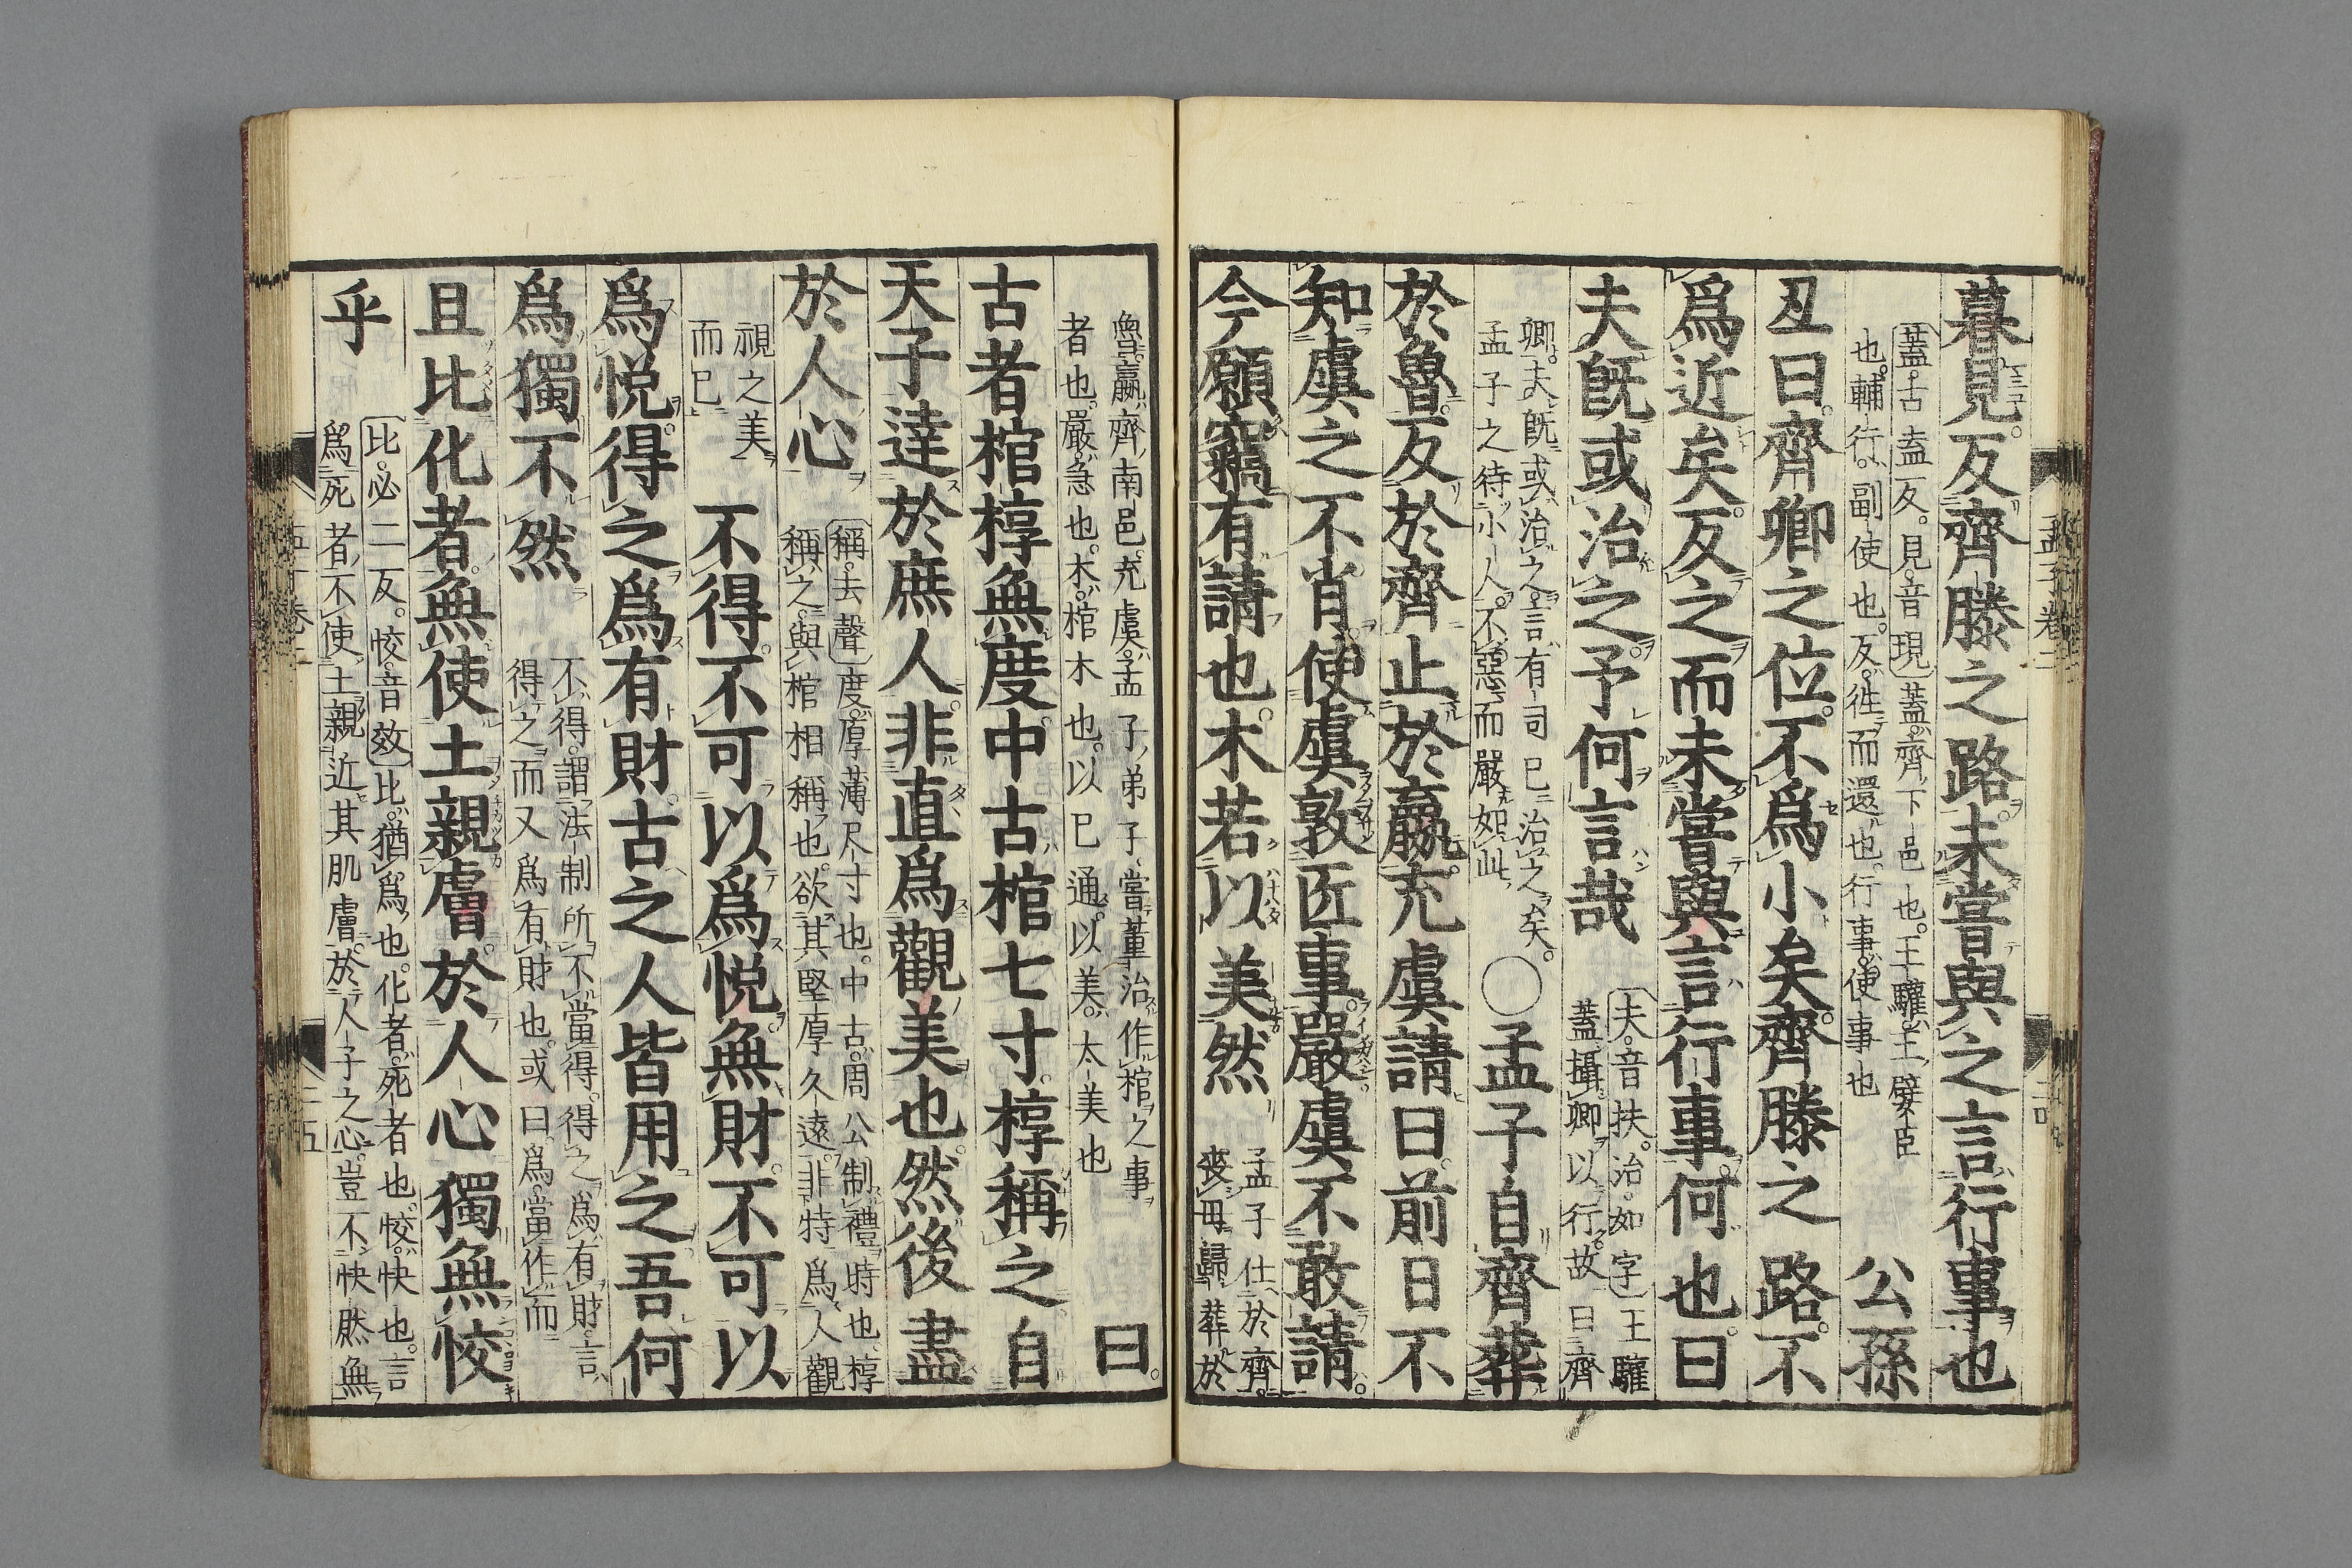 暮見反齊滕之路未嘗與之言行事也
蓋古盍反見音現蓋齊下邑也王驩王嬖臣
也輔行副使也反徃而還也行事使事也
公孫
丑曰齊卿之位不爲小矣齊滕之路不
爲近矣反之而未嘗與言行事何也曰
夫既或治之予何言哉
夫音扶治如字王驩
蓋攝卿以行故曰齊
卿夫既或治之言有司已治之矣
孟子之待小人不惡而嚴如此
○孟子自齊葬
於魯反於齊止於嬴充虞請曰前日不
知虞之不肖使虞敦匠事嚴虞不敢請
今願竊有請也木若以美然
孟子仕於齊
喪母歸葬於
魯嬴齊南邑充虞孟子弟子嘗董治作棺之事
者也嚴急也木棺木也以已通以美太美也
曰
古者棺椁無度中古棺七寸椁稱之自
天子達於庶人非直爲觀美也然後盡
於人心
稱去聲度厚薄尺寸也中古周公制禮時也椁
稱之與棺相稱也欲其堅厚久遠非特爲人觀
視之美
而已
不得不可以爲悦無財不可以
爲悦得之爲有財古之人皆用之吾何
爲獨不然
不得謂法制所不當得得之爲有財言
得之而又爲有財也或曰爲當作而
且比化者無使土親膚於人心獨無恔
乎
比必二反恔音效比猶爲也化者死者也恔快也言
爲死者不使土親近其肌膚於人子之心豈不快然無